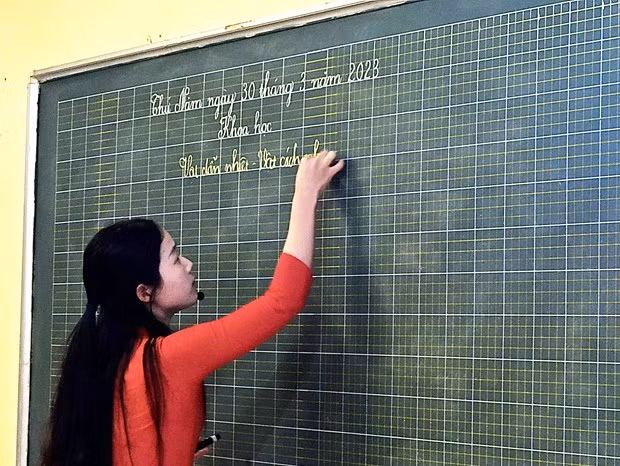 Thứ Năm ngày 30 tháng 3 năm 2023
Khoa học
Vật dẫn nhiệt - Vật cách